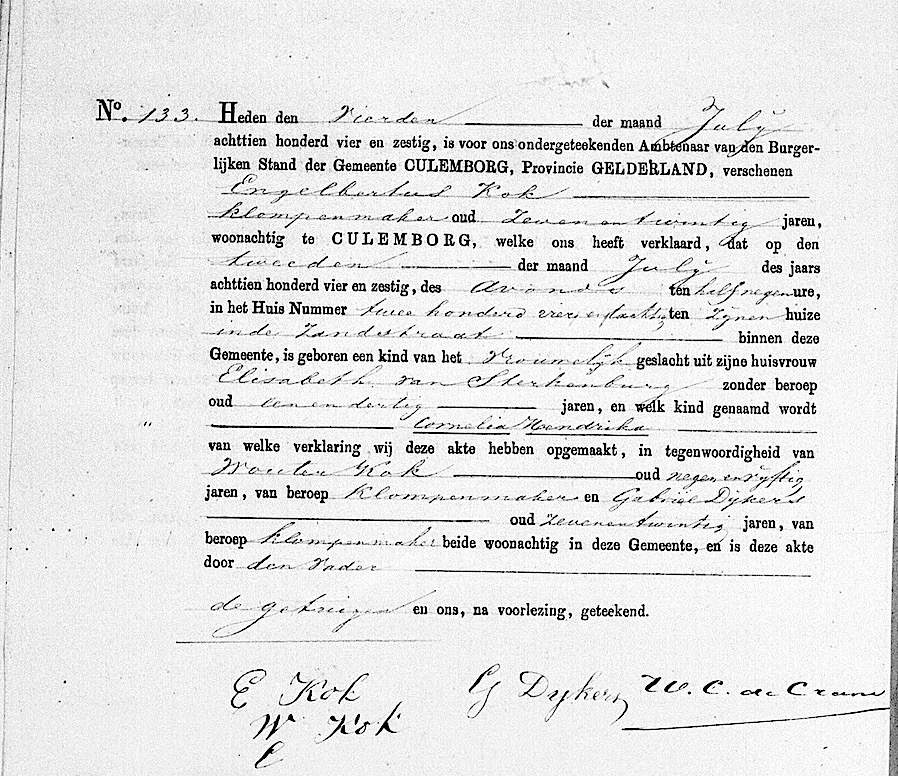 No. 133. Heden den Vierden der maand July
achttien honderd vier en zestig, is voor ons ondergeteekenden Ambtenaar van den Burger-
lijken Stand der Gemeente CULEMBORG, Provincie GELDERLAND, verschenen
Engelbertus Kok
klompenmaker oud Zevenentwintig jaren,
woonachtig te CULEMBORG, welke ons heeft verklaard, dat op den
tweeden der maand July des jaars
achttien honderd vier en zestig, des Avonds ten half negen ure,
in het Huis Nummer twee honderd vier en tachtig ten Zynen huize
in de Zandstraat binnen deze
Gemeente, is geboren een kind van het Vrouwelijk geslacht uit zijne huisvrouw
Elisabeth van Sterkenburg zonder beroep
oud een en dertig jaren, en welk kind genaamd wordt
Cornelia Hendrika
van welke verklaring wij deze akte hebben opgemaakt, in tegenwoordigheid van
Wouter Kok oud negen en vyftig
jaren, van beroep Klompenmaker en Gabriel Dykers
oud Zevenentwintig jaren, van
beroep klompenmaker beide woonachtig in deze Gemeente, en is deze akte
door den Vader
de getuigen en ons, na voorlezing, geteekend.
E Kok G Dykers W. C. de Crane
W Kok